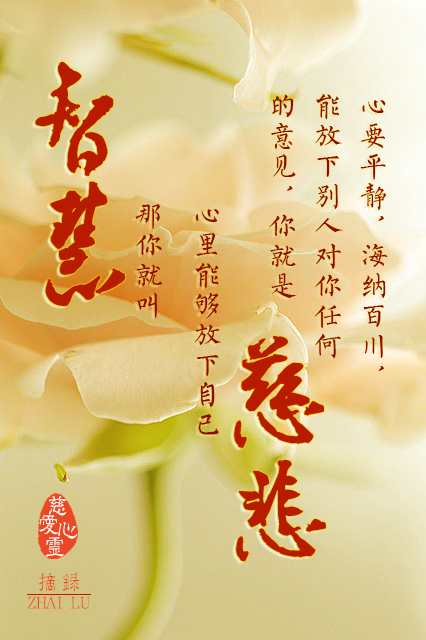 心要平静，海纳百川，
能放下别人对你任何
的意见，你就是
慈悲
心里能够放下自己
那你就叫
智慧
慈爱心靈
摘録
ZHAI LU